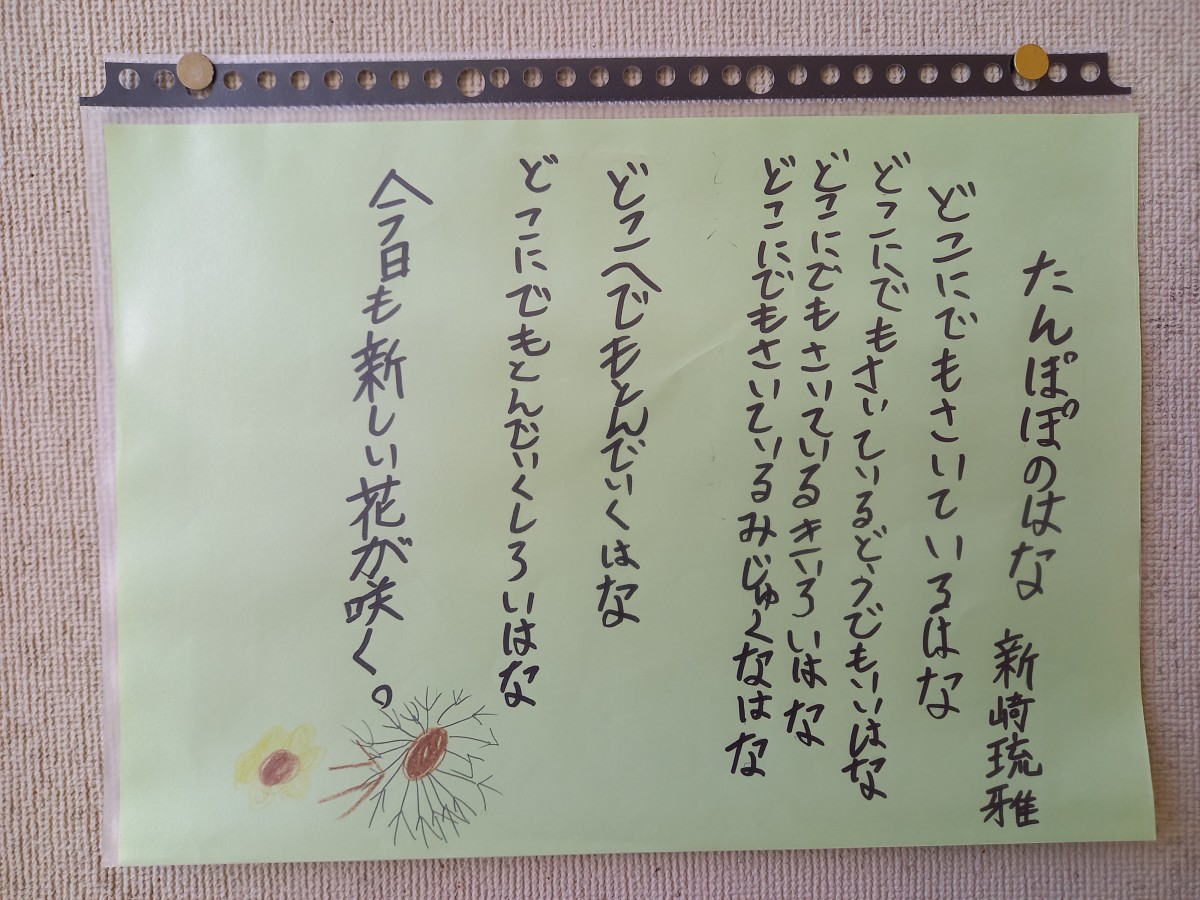 たんぽぽのはな 新崎琉雅
どこにでもさいているはな
どこにでもさいているどうでもいいはな
どこにでもさいているきいろいはな
どこにでもさいているみじゅくなはな
どこへでもとんでいくはな
どこにでもとんでいくしろいはな
今日も新しい花が咲く。